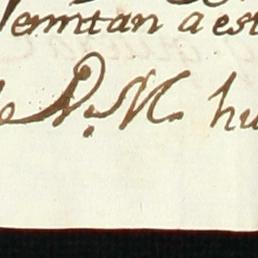 enittan a est
e N. M. hu